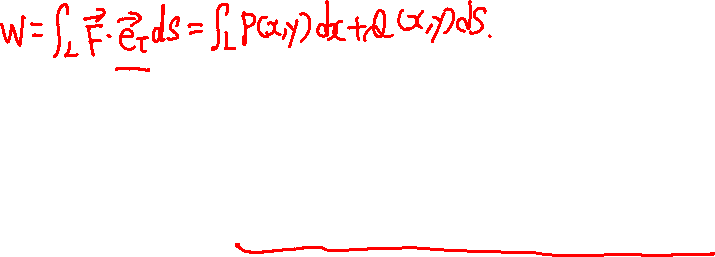 W = ∫_L F⃗ · e⃗_τ ds = ∫_L P(x,y) dx + Q(x,y) ds.